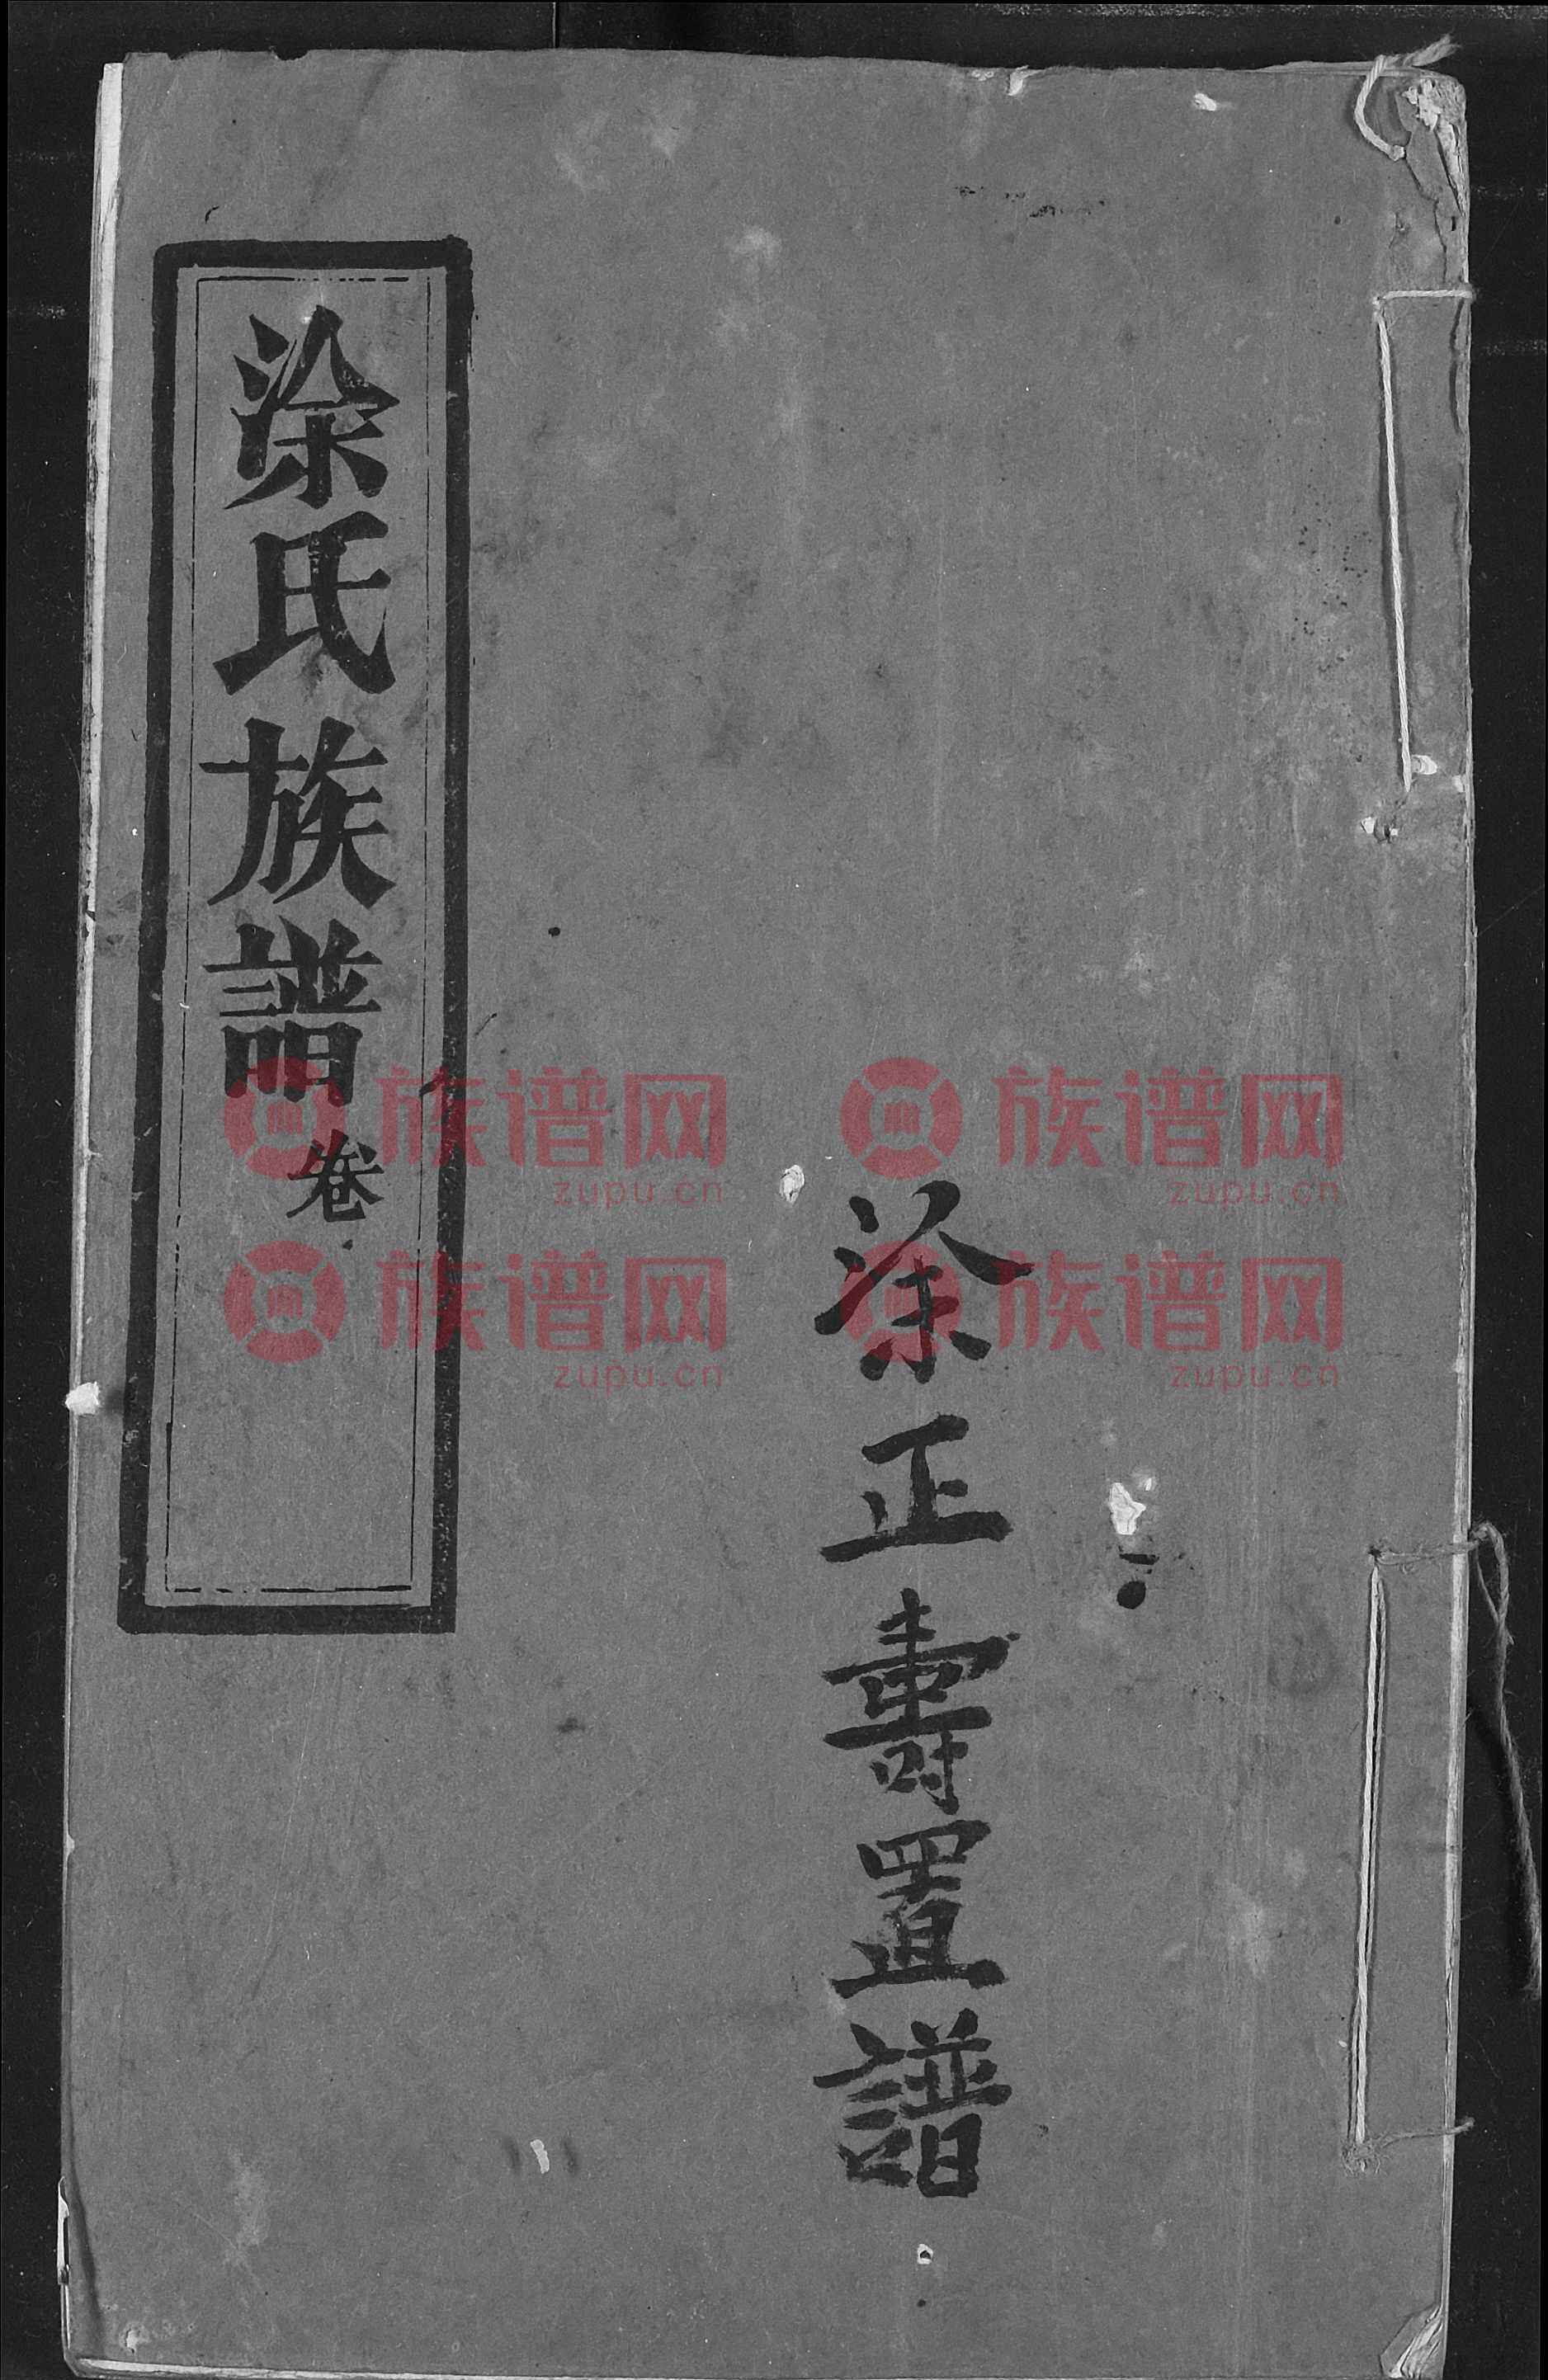 涂氏族譜卷
涂正壽置譜
族谱网 族谱网
zupu.cn zupu.cn
族谱网 族谱网
zupu.cn zupu.cn